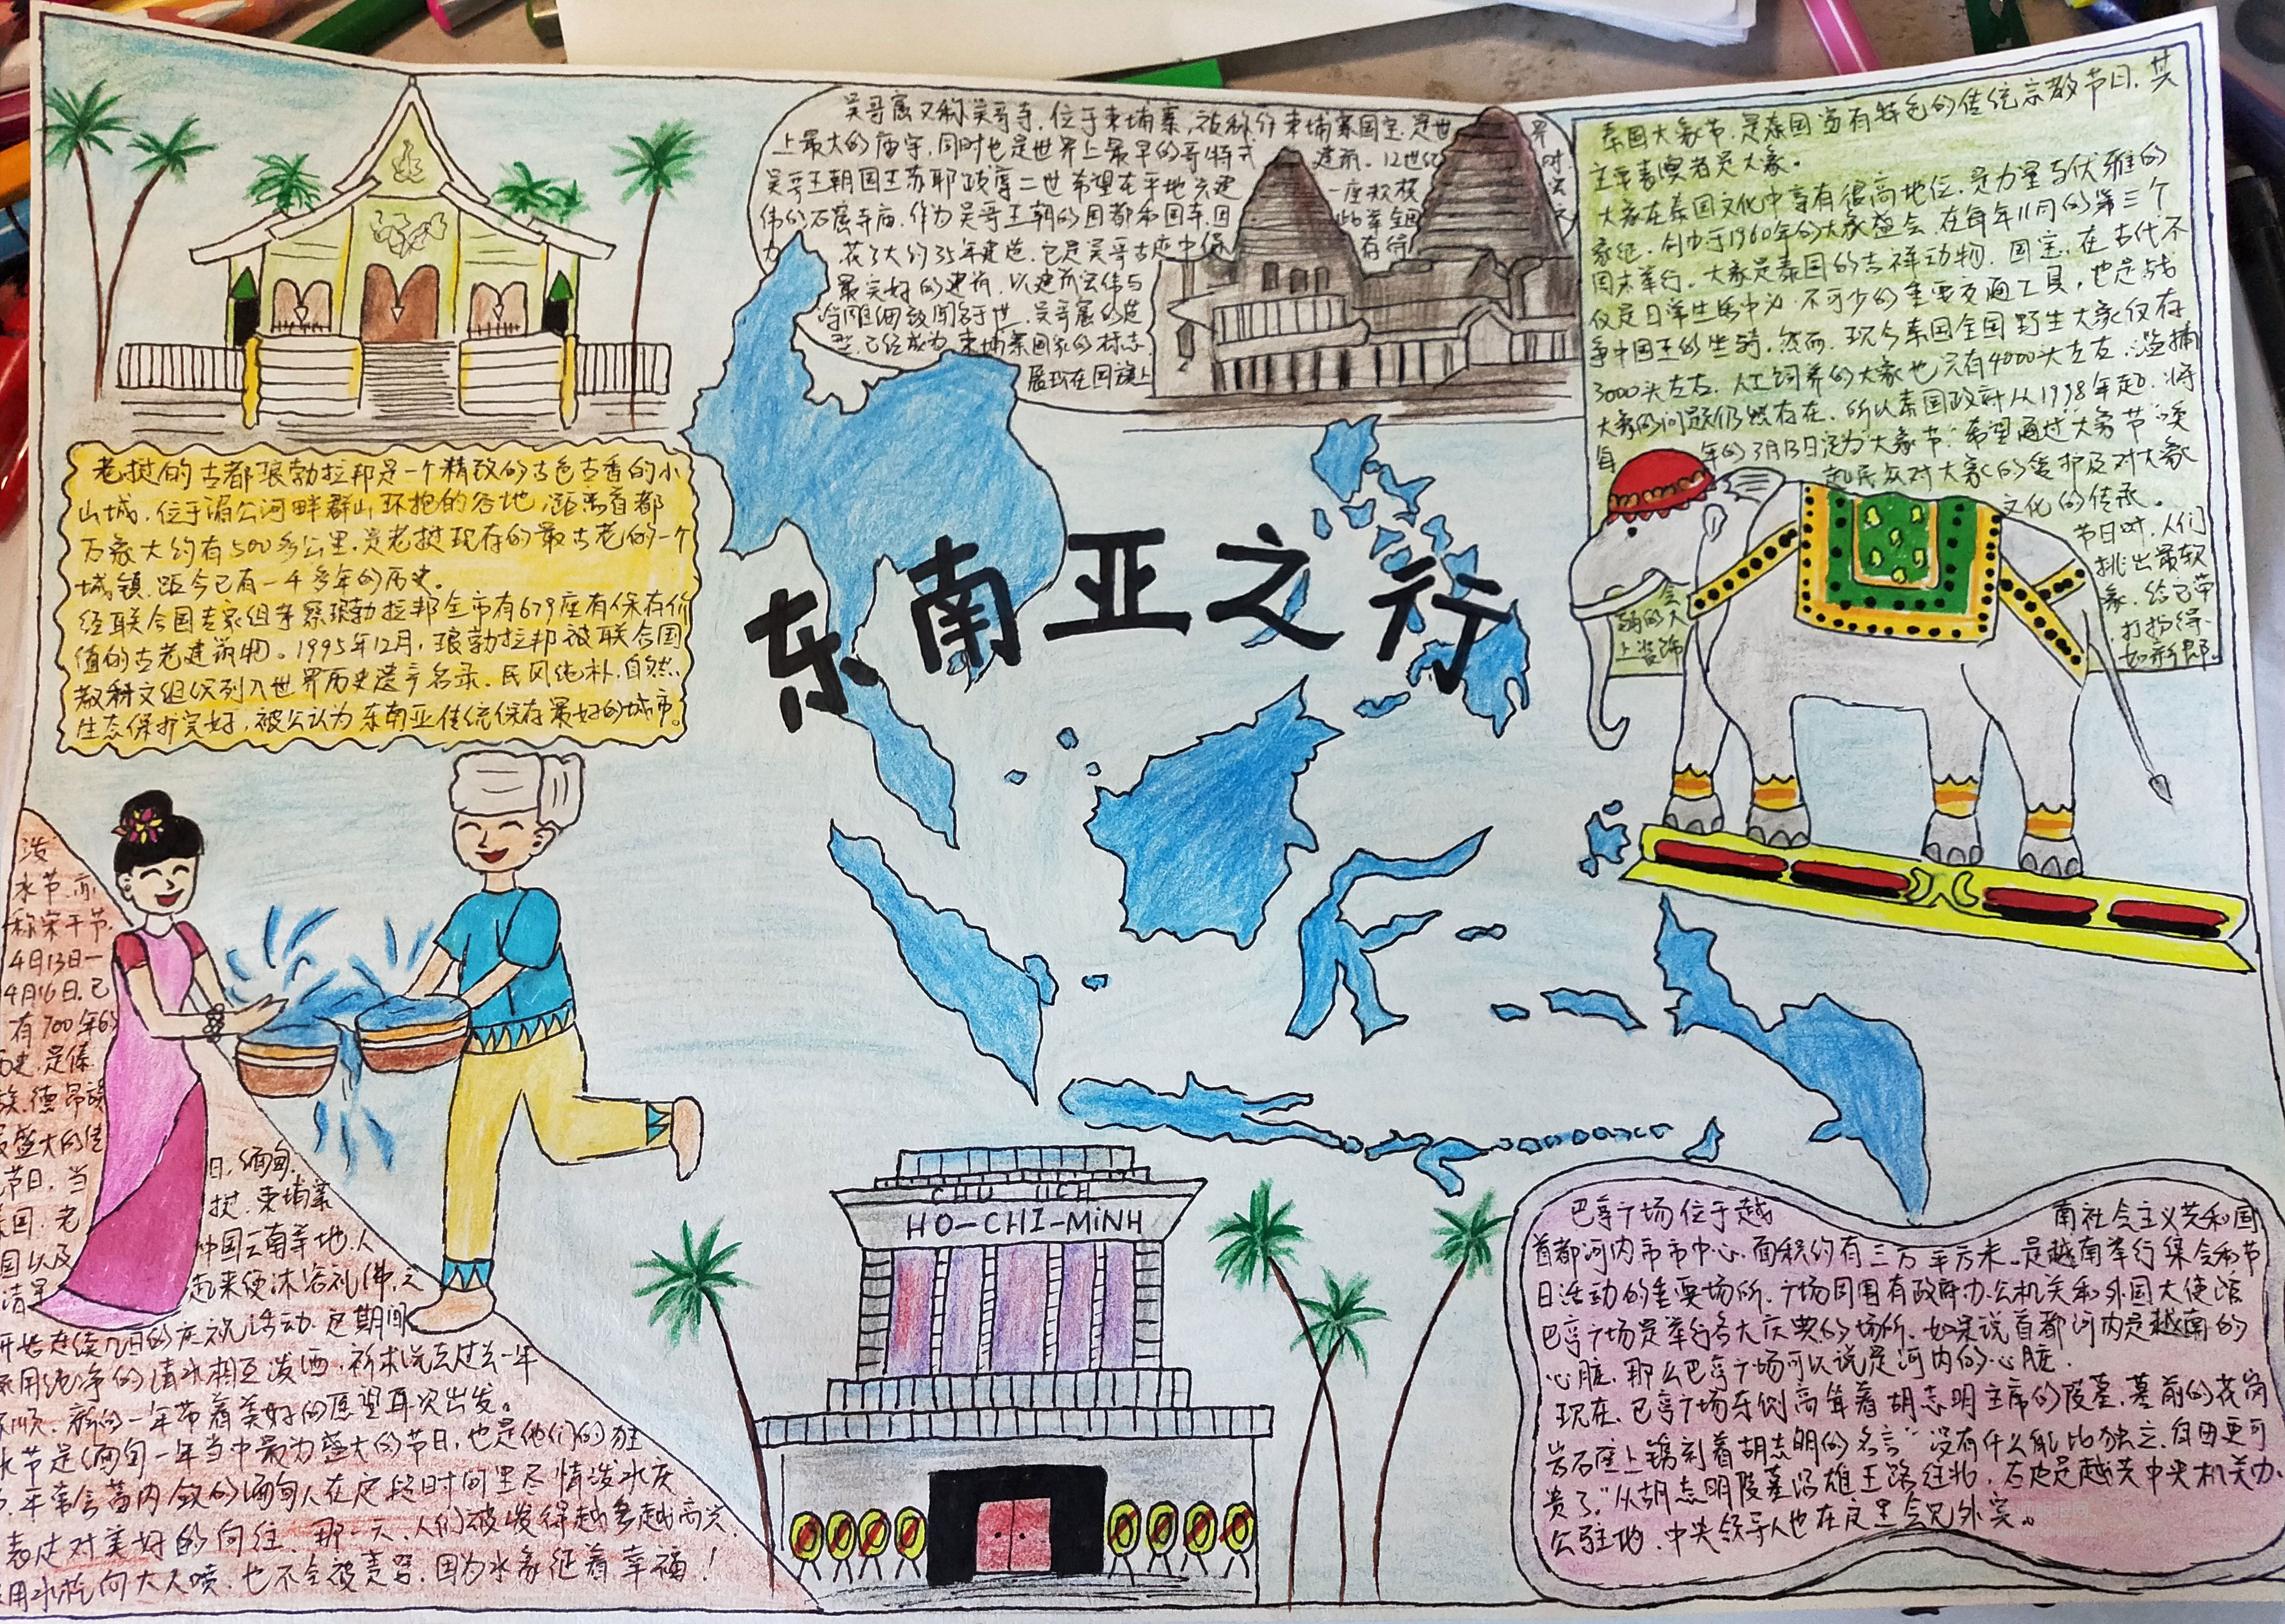 东南亚之行
吴哥窟又称吴哥寺,位于柬埔寨,被称作柬埔寨国宝,是世界
上最大的庙宇,同时也是世界上最早的哥特式建筑。12世纪时,
吴哥王朝国王苏耶跋摩二世希望在平地兴建一座规模
伟的石窟寺庙,作为吴哥王朝的国都和国寺,因
力 花了大约35年建造,它是吴哥古迹中保 有得
最完好的建筑,以建筑宏伟与
浮雕细致闻名于世,吴哥窟的造
型,已经成为柬埔寨国家的标志,
展现在国旗上
泰国大象节,是泰国富有特色的传统宗教节日,其
主要表演者是大象。
大象在泰国文化中享有很高地位,是力量与优雅的
象征,创办于1960年的大象盛会,在每年11月的第三个
周末举行。大象是泰国的吉祥动物、国宝,在古代不
仅是日常生活中必不可少的重要交通工具,也是战
争中国王的坐骑,然而,现今泰国全国野生大象仅存
3000头左右,人工饲养的大象也只有4000头左右,滥捕
大象的问题仍然存在,所以泰国政府从1998年起,将
每年的3月13日定为大象节,希望通过"大象节"唤
起民众对大象的爱护及对大象
文化的传承。
节日时,人们
会挑出最软
弱的大象,给它带
上装饰,打扮得
如新郎。
老挝的古都琅勃拉邦是一个精致的古色古香的小
山城,位于湄公河畔群山环抱的谷地,距离首都
万象大约有500多公里,是老挝现存的最古老的一个
城镇,距今已有一千多年的历史。
经联合国专家组考察琅勃拉邦全市有679座有保存价
值的古老建筑物。1995年12月,琅勃拉邦被联合国
教科文组织列入世界历史遗产名录,民风纯朴,自然
生态保护完好,被公认为东南亚传统保存最好的城市。
泼
水节,亦
称宋干节,
4月13日一
4月16日,已
有700年的
历史,是傣
族、德昂族
最盛大的传
节日,当日,缅甸、
泰国、老挝、柬埔寨
国以及中国云南等地,人
清早起来便沐浴礼佛,之
开始连续几日的庆祝活动,这期间
用纯净的清水相互泼洒,祈求洗去过去一年
顺,新的一年带着美好的愿望再次出发。
水节是缅甸一年当中最为盛大的节日,也是他们的狂
平常含蓄内敛的缅甸人在这段时间里尽情泼水庆
表达对美好的向往,那一天,人们被泼得越多越高兴,
用水枪向大人喷,也不会被责骂,因为水象征着幸福!
CHU TICH
HO-CHI-MINH
巴亭广场位于越南社会主义共和国
首都河内市市中心,面积约有三万平方米。是越南举行集会和节
日活动的重要场所,广场周围有政府办公机关和外国大使馆
巴亭广场是举行各大庆典的场所,如果说首都河内是越南的
心脏,那么巴亭广场可以说是河内的心脏。
现在,巴亭广场东侧高耸着胡志明主席的陵墓,墓前的花岗
岩石座上镌刻着胡志明的名言"没有什么能比独立、自由更可
贵了。"从胡志明陵墓沿雄王路往北,右边是越共中央机关办
公驻地,中央领导人也在这里会见外宾。